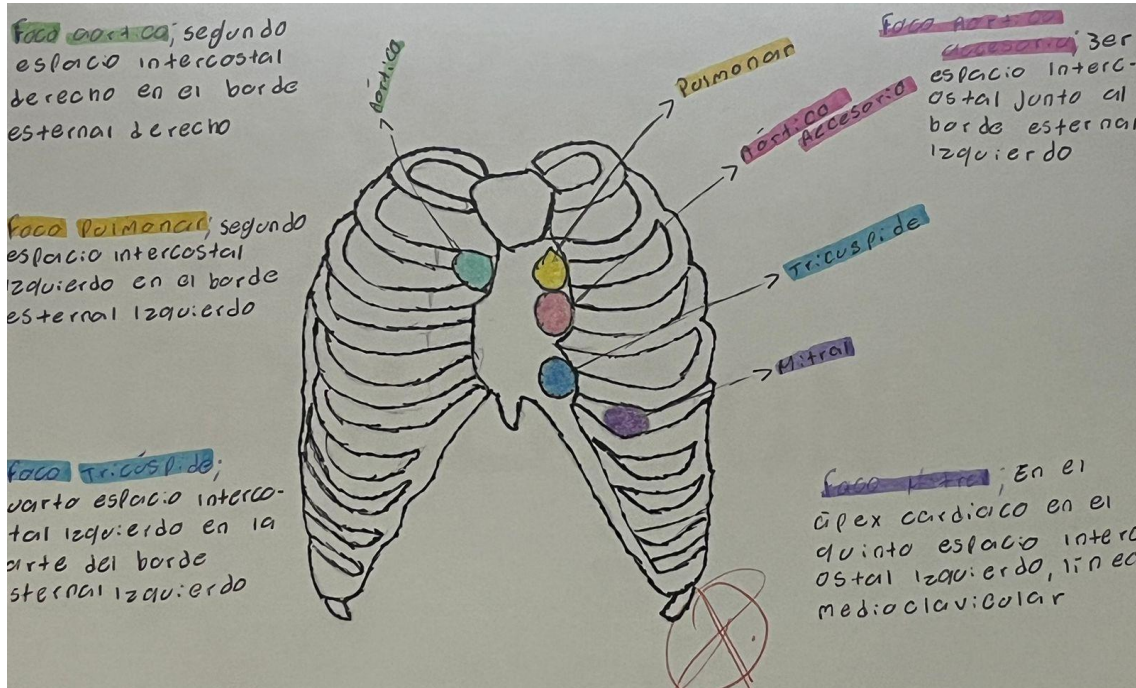 Foco aortico; segundo
espacio intercostal
derecho en el borde
esternal derecho
Foco Pulmonar; segundo
espacio intercostal
izquierdo en el borde
esternal izquierdo
Foco Tricúspide;
uarto espacio interco-
tal izquierdo en la
arte del borde
sternal izquierdo
Aórtico
Pulmonar
Aórtico
Accesorio
Tricuspide
Mitral
Foco Aortico
accesorio; 3er
espacio interc-
ostal junto al
borde esternal
izquierdo
Foco Mitral; En el
ápex cardiaco en el
quinto espacio interc
ostal izquierdo, linea
medioclavicular